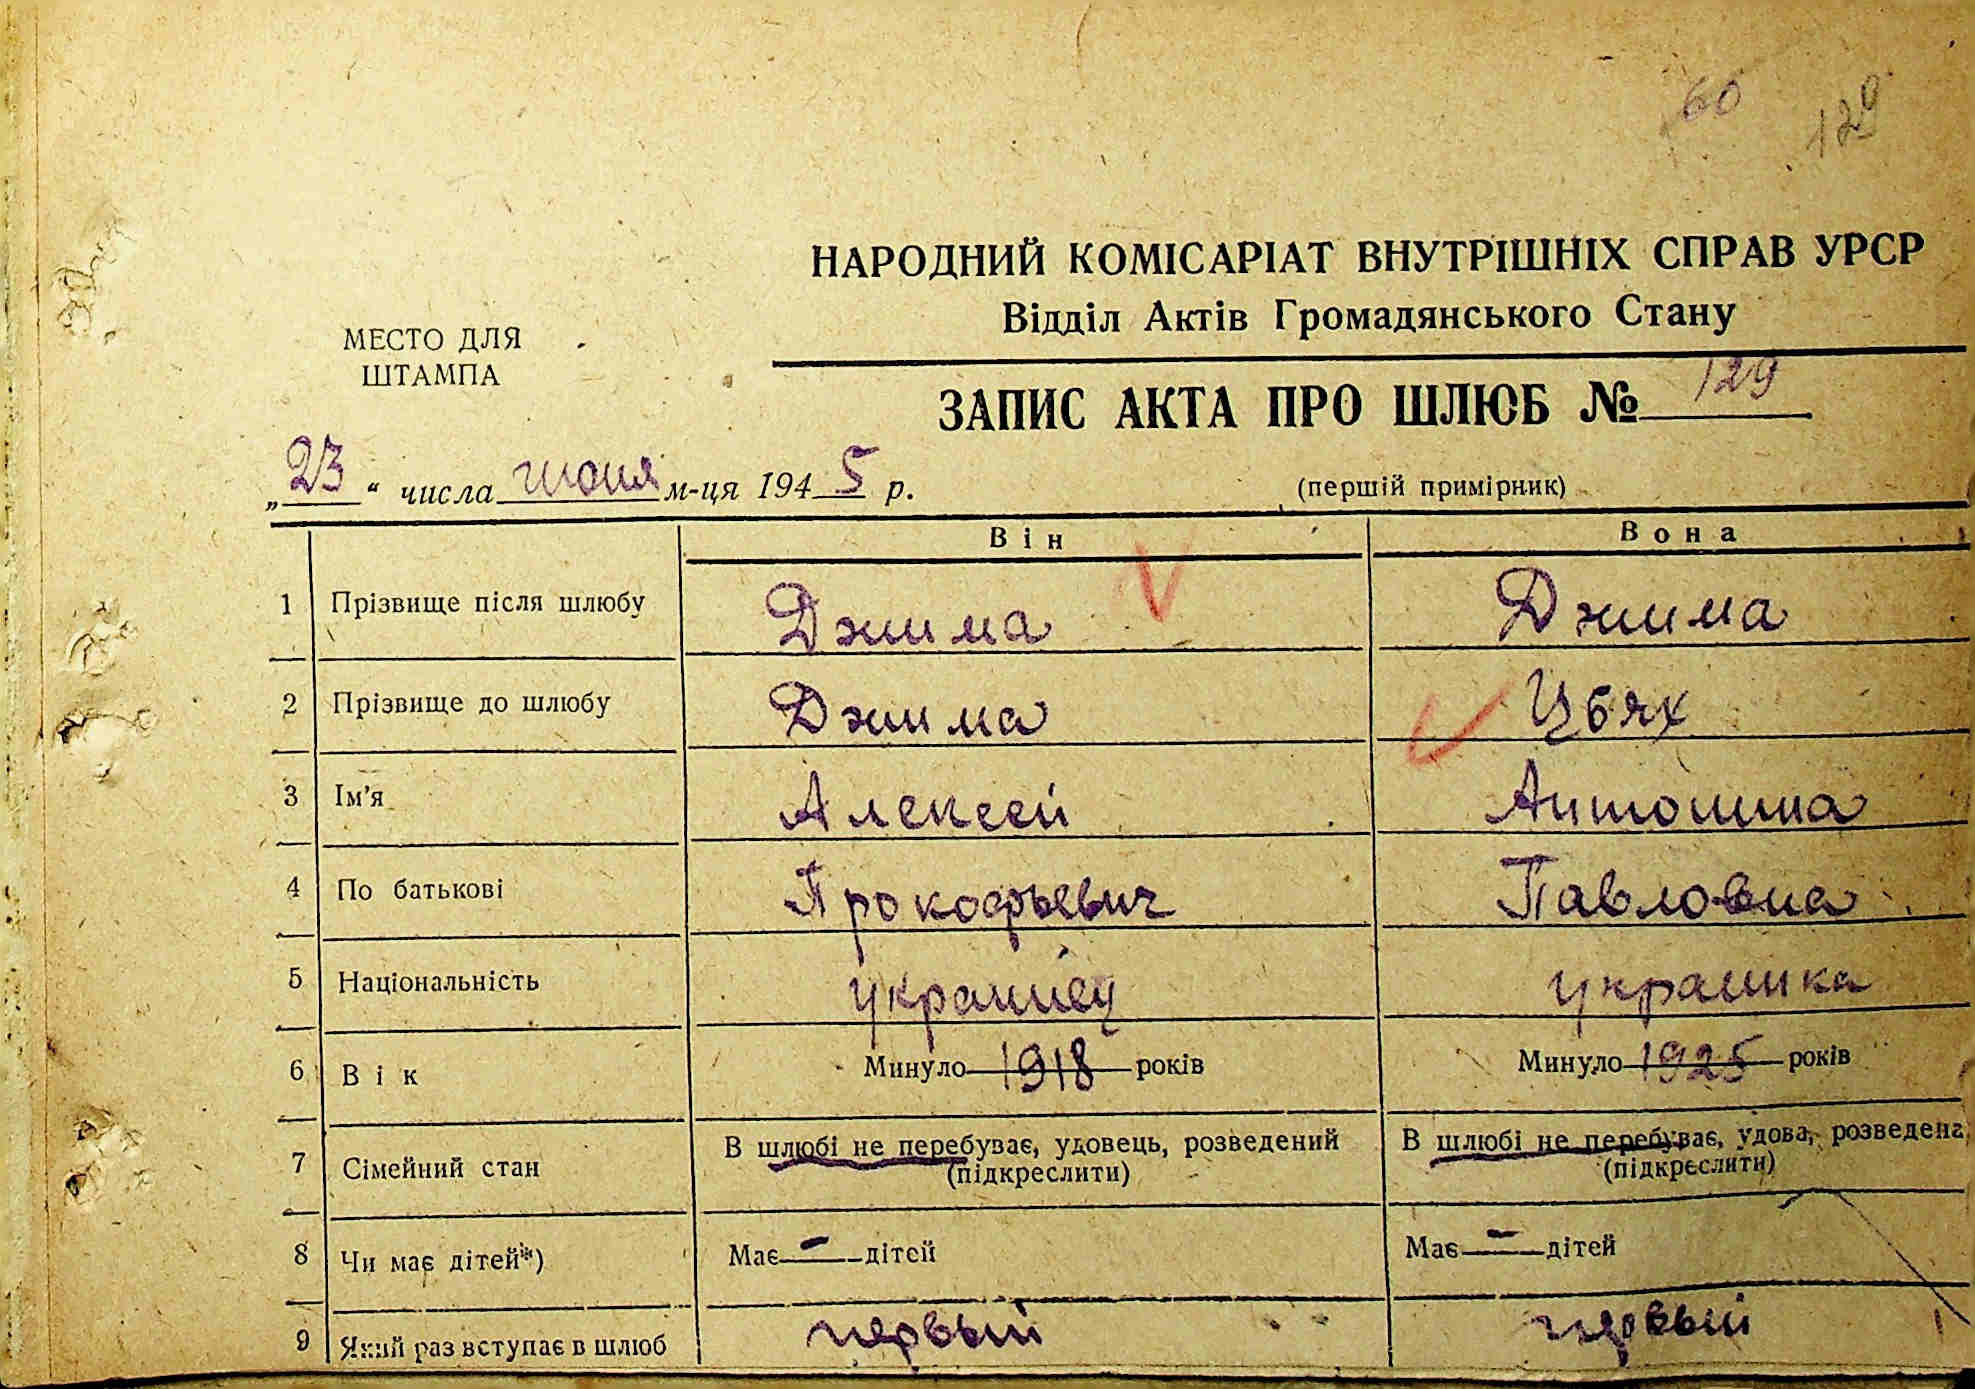 60
129
НАРОДНИЙ КОМІСАРІАТ ВНУТРІШНІХ СПРАВ УРСР
Відділ Актів Громадянського Стану
МЕСТО ДЛЯ
ШТАМПА
ЗАПИС АКТА ПРО ШЛЮБ № 129
„23“ числа июня м-ця 1945 р.
(першій примірник)
Він Вона
1 Прізвище після шлюбу Джима Джима
2 Прізвище до шлюбу Джима Цьях
3 Ім'я Алексей Антонина
4 По батькові Прокофьевич Павловна
5 Національність украинец украинка
6 Вік Минуло 1918 років Минуло 1925 років
7 Сімейний стан В шлюбі не перебуває, удовець, розведений (підкреслити) В шлюбі не перебуває, удова, розведена (підкреслити)
8 Чи має дітей*) Має — дітей Має — дітей
9 Який раз вступає в шлюб первый первый